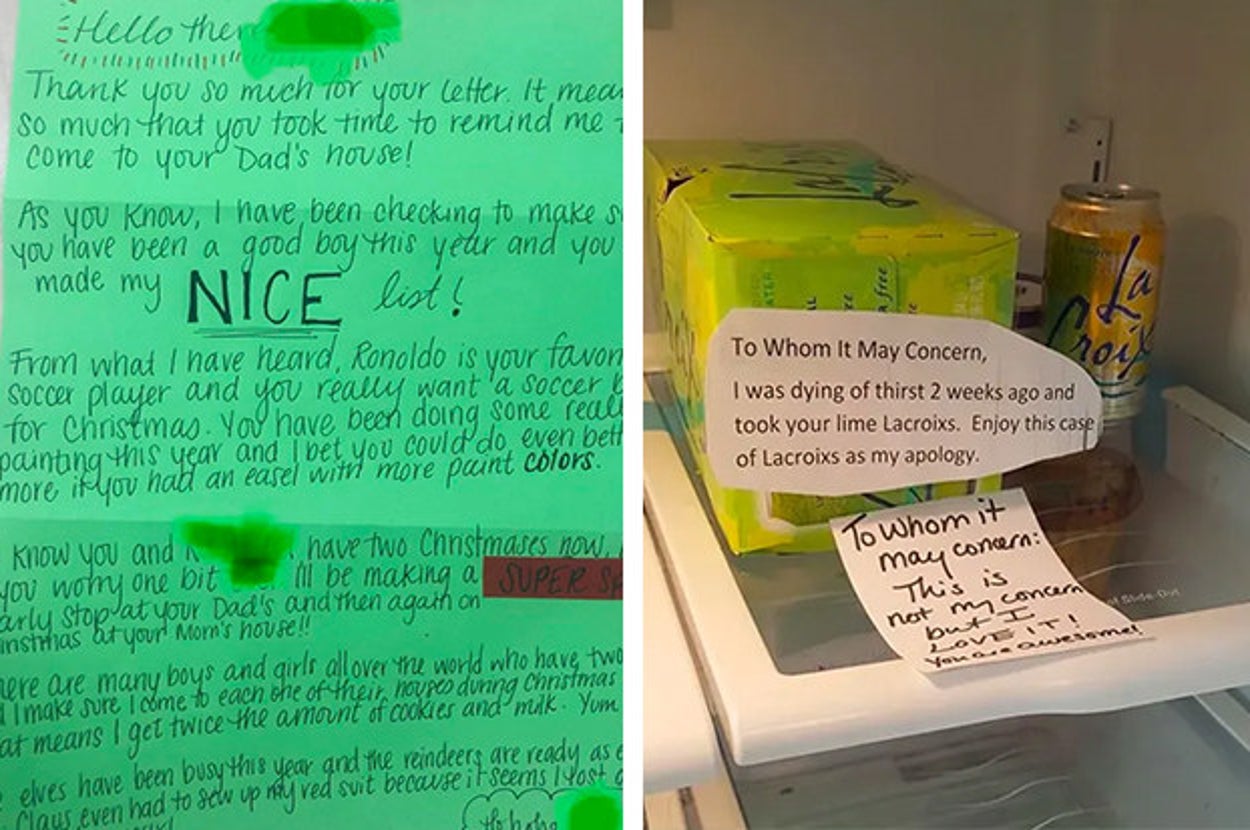 Hello ther
Thank you so much for your letter. It mea
so much that you took time to remind me
come to your Dad's house!
As you know, I have been checking to make s
you have been a good boy this year and you
made my NICE list!
From what I have heard, Ronoldo is your favor
soccer player and you really want a soccer b
for Christmas. You have been doing some real
painting this year and I bet you could do even bett
more if you had an easel with more paint colors.
Know you and have two Christmases now,
you worry one bit I'll be making a SUPER SP
arly stop at your Dad's and then again on
hristmas at your Mom's house!!
here are many boys and girls all over the world who have two
I make sure I come to each one of their houses during Christmas
at means I get twice the amount of cookies and milk. Yum
elves have been busy this year and the reindeers are ready as
Claus even had to sew up my red suit because it seems I lost
La
Croix
To Whom It May Concern,
I was dying of thirst 2 weeks ago and
took your lime Lacroixs. Enjoy this case
of Lacroixs as my apology.
To whom it
may concern:
This is
not my concern
but I
LOVE IT!
You are awesome!